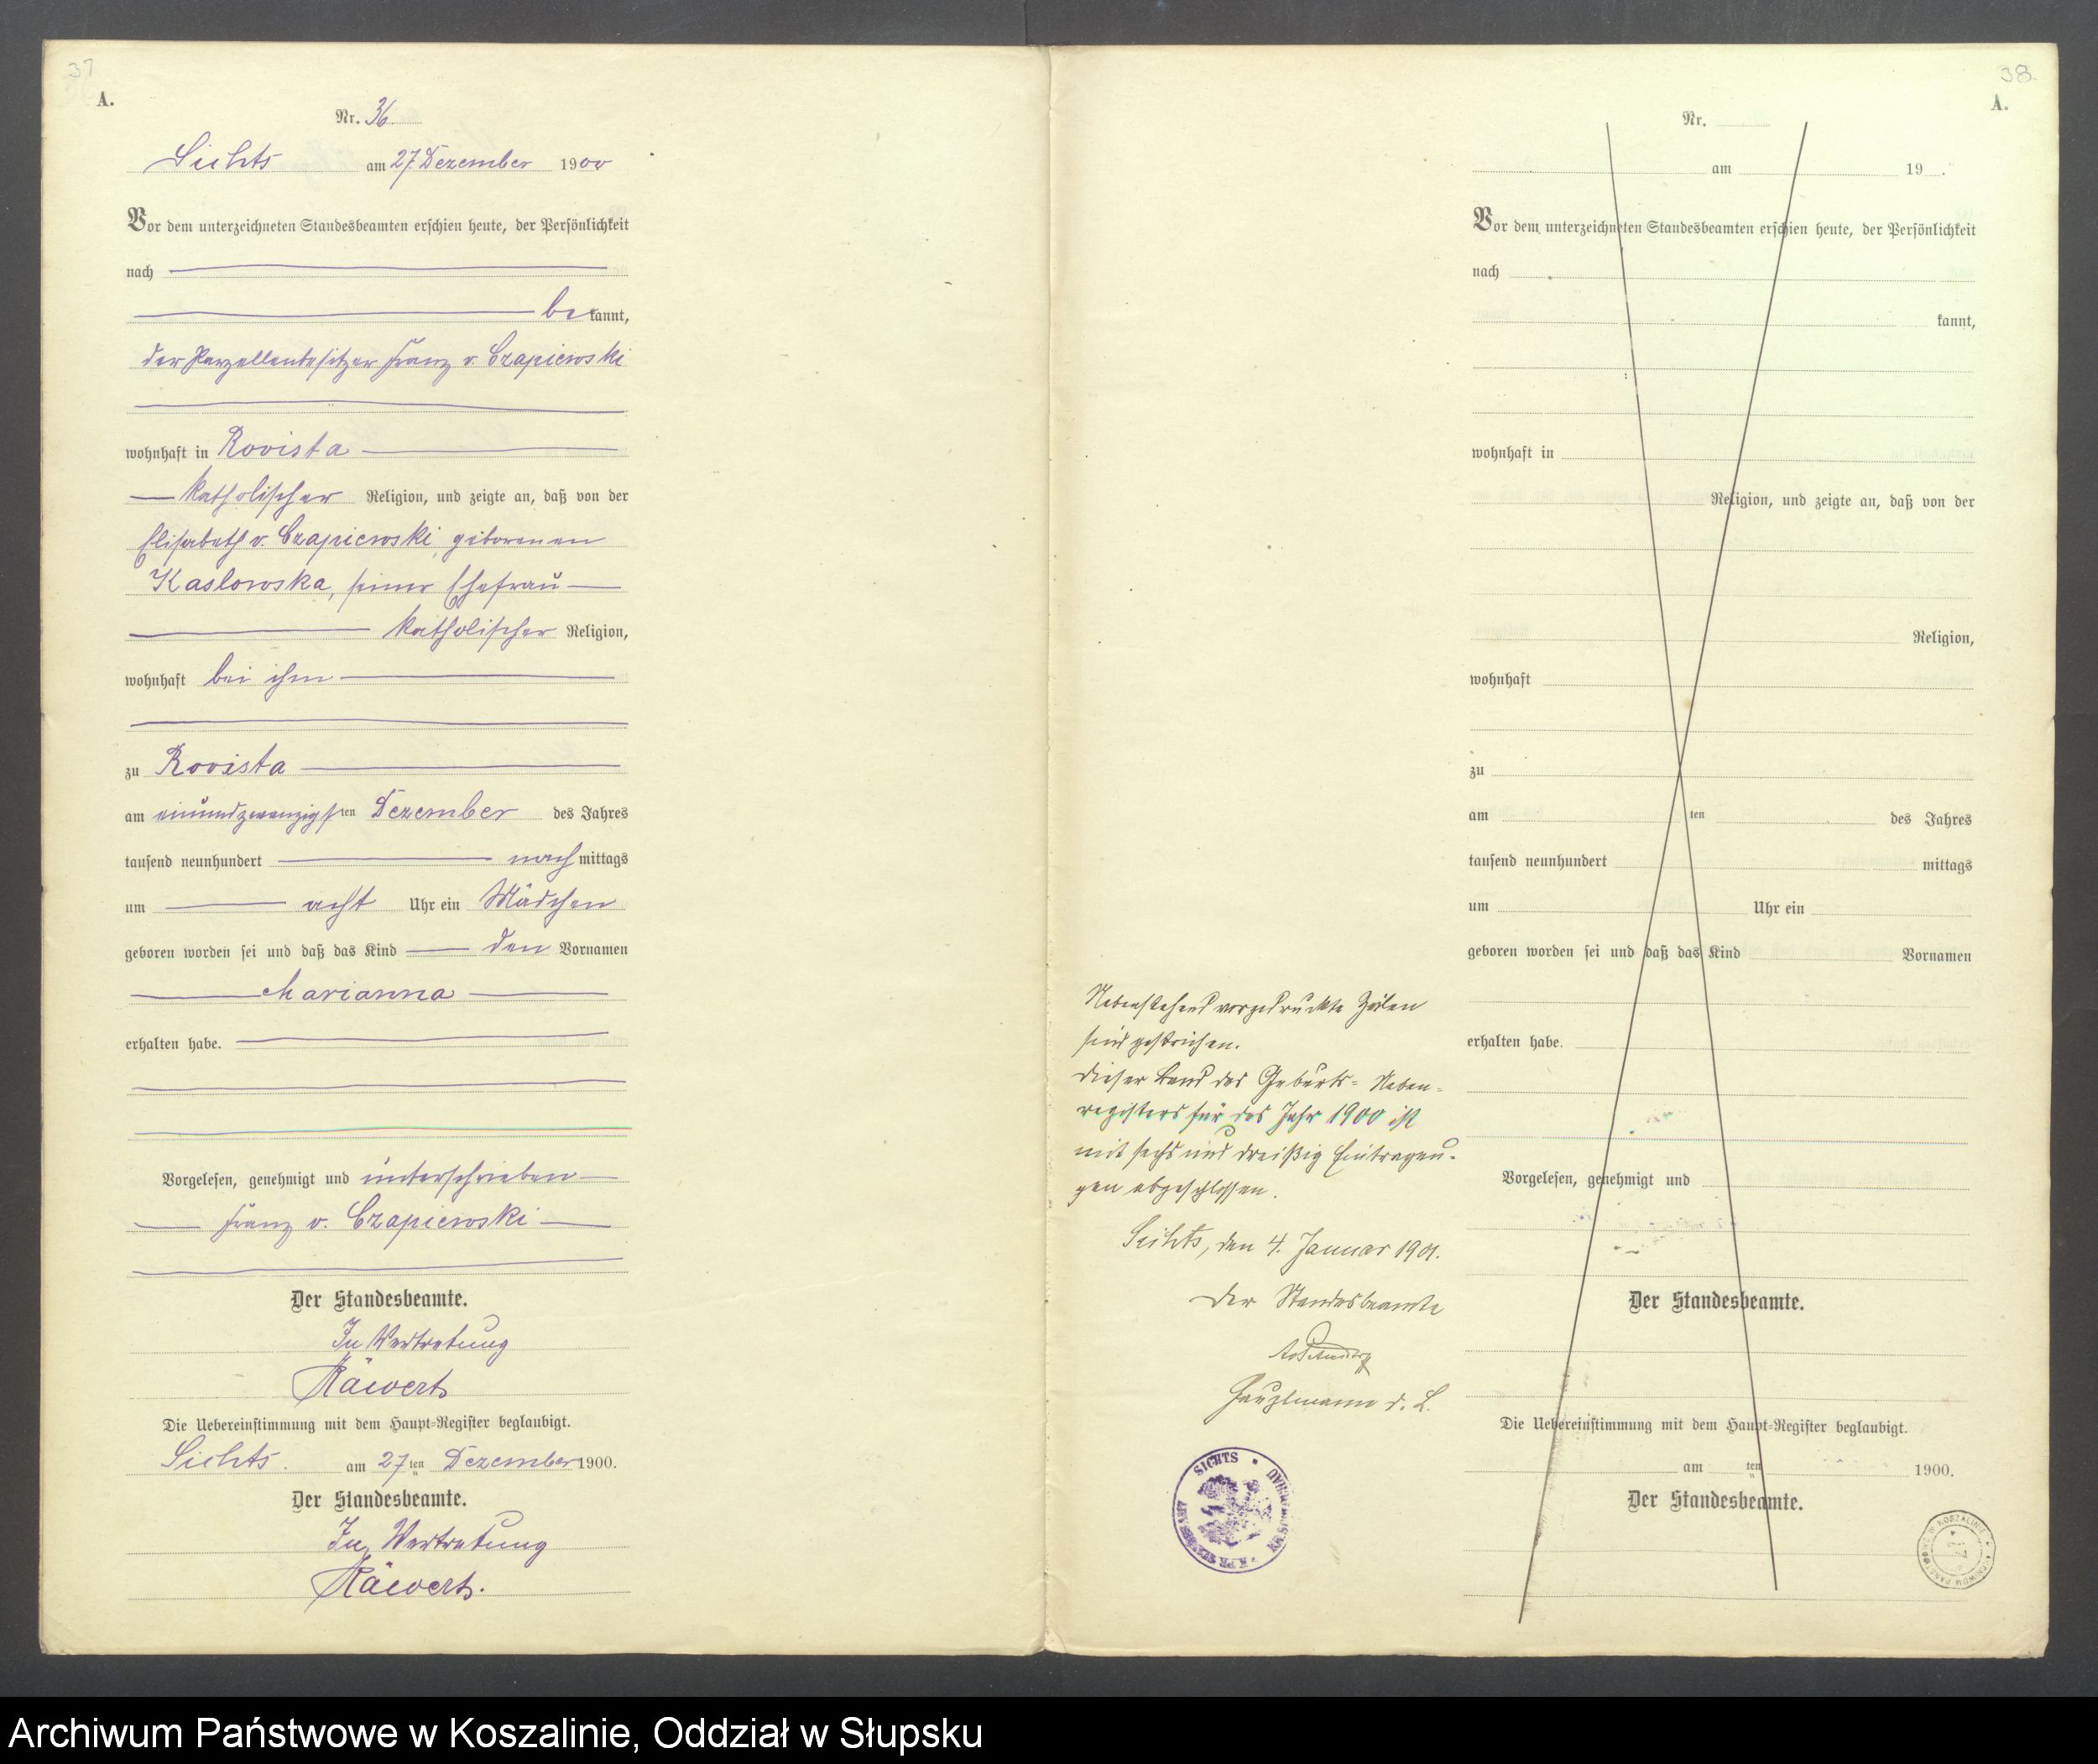 37
A.
Nr. 36
Sichts am 27. Dezember 1900
Vor dem unterzeichneten Standesbeamten erschien heute, der Persönlichkeit
nach
bekannt,
der Parzellenbesitzer Franz v. Czapiewski
wohnhaft in Rovista
katholischer Religion, und zeigte an, daß von der
Elisabeth v. Czapiewski, geborenen
Kaslowska, seiner Ehefrau
katholischer Religion,
wohnhaft bei ihm
zu Rovista
am einundzwanzigsten Dezember des Jahres
tausend neunhundert nachmittags
um acht Uhr ein Mädchen
geboren worden sei und daß das Kind den Vornamen
Marianna
erhalten habe.
Vorgelesen, genehmigt und unterschrieben
Franz v. Czapiewski
Der Standesbeamte.
In Vertretung
Räwert
Die Uebereinstimmung mit dem Haupt-Register beglaubigt.
Sichts. am 27ten Dezember 1900.
Der Standesbeamte.
In Vertretung
Räwert.
Nebenstehend vorgedruckte Zeilen
sind gestrichen.
Dieser Band des Geburts-Neben-
registers für das Jahr 1900 ist
mit sechs und dreißig Eintragun-
gen abgeschlossen.
Sichts, den 4. Januar 1901.
Der Standesbeamte
SICHTS
38.
A.
Nr.
am 19
Vor dem unterzeichneten Standesbeamten erschien heute, der Persönlichkeit
nach
kannt,
wohnhaft in
Religion, und zeigte an, daß von der
Religion,
wohnhaft
zu
am ten des Jahres
tausend neunhundert mittags
um Uhr ein
geboren worden sei und daß das Kind Vornamen
erhalten habe.
Vorgelesen, genehmigt und
Der Standesbeamte.
Die Uebereinstimmung mit dem Haupt-Register beglaubigt.
am ten 1900.
Der Standesbeamte.
Archiwum Państwowe w Koszalinie, Oddział w Słupsku